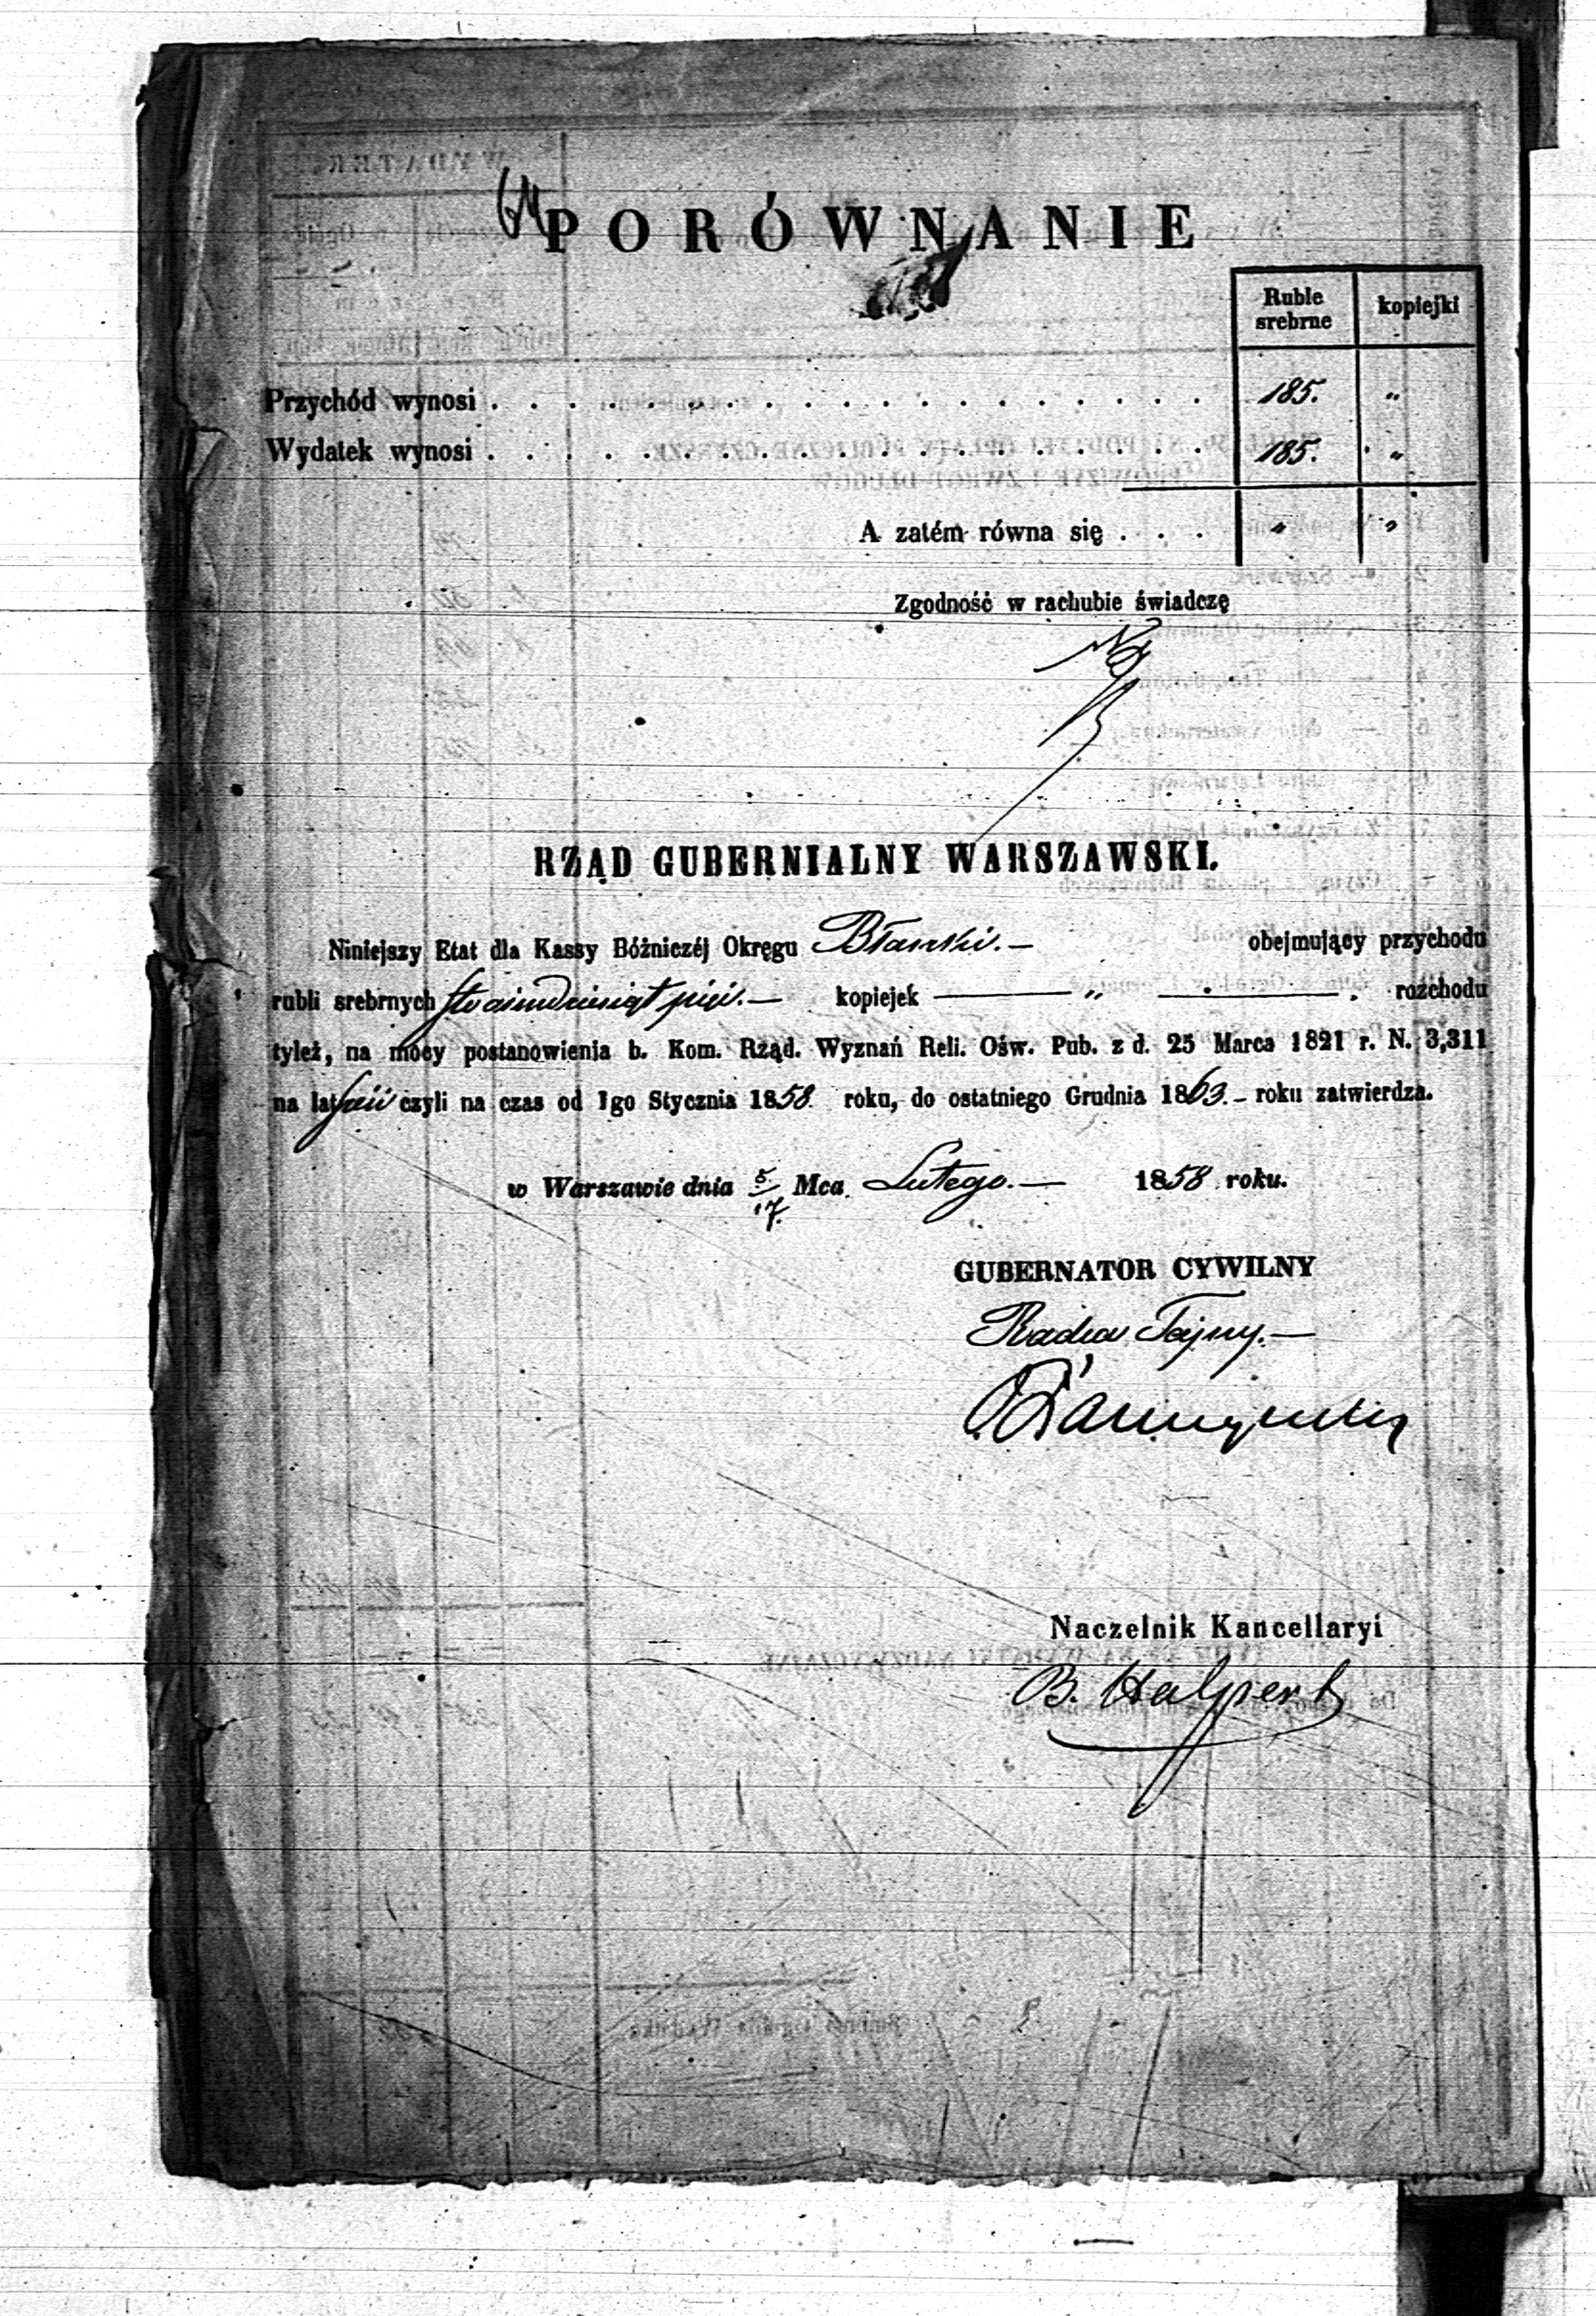 PORÓWNANIE
Ruble srebrne kopiejki
Przychód wynosi . . . . . . . . . . . . . . . . . . . 185. "
Wydatek wynosi . . . . . . . . . . . . . . . . . . . 185. "
A zatém równa się . . . " "
Zgodność w rachubie świadczę
RZĄD GUBERNIALNY WARSZAWSKI.
Niniejszy Etat dla Kassy Bóżniczéj Okręgu Błaszki.— obejmujący przychodu
rubli srebrnych sto ośmdziesiąt pięć.— kopiejek — " — rozchodu
tyleż, na mocy postanowienia b. Kom. Rząd. Wyznań Reli. Ośw. Pub. z d. 25 Marca 1821 r. N. 3,311
na lat sześć czyli na czas od 1go Stycznia 1858. roku, do ostatniego Grudnia 1863.– roku zatwierdza.
w Warszawie dnia 5/17. Mca Lutego.— 1858 roku.
GUBERNATOR CYWILNY
Radca Tajny.—
Naczelnik Kancellaryi
B. Halpert